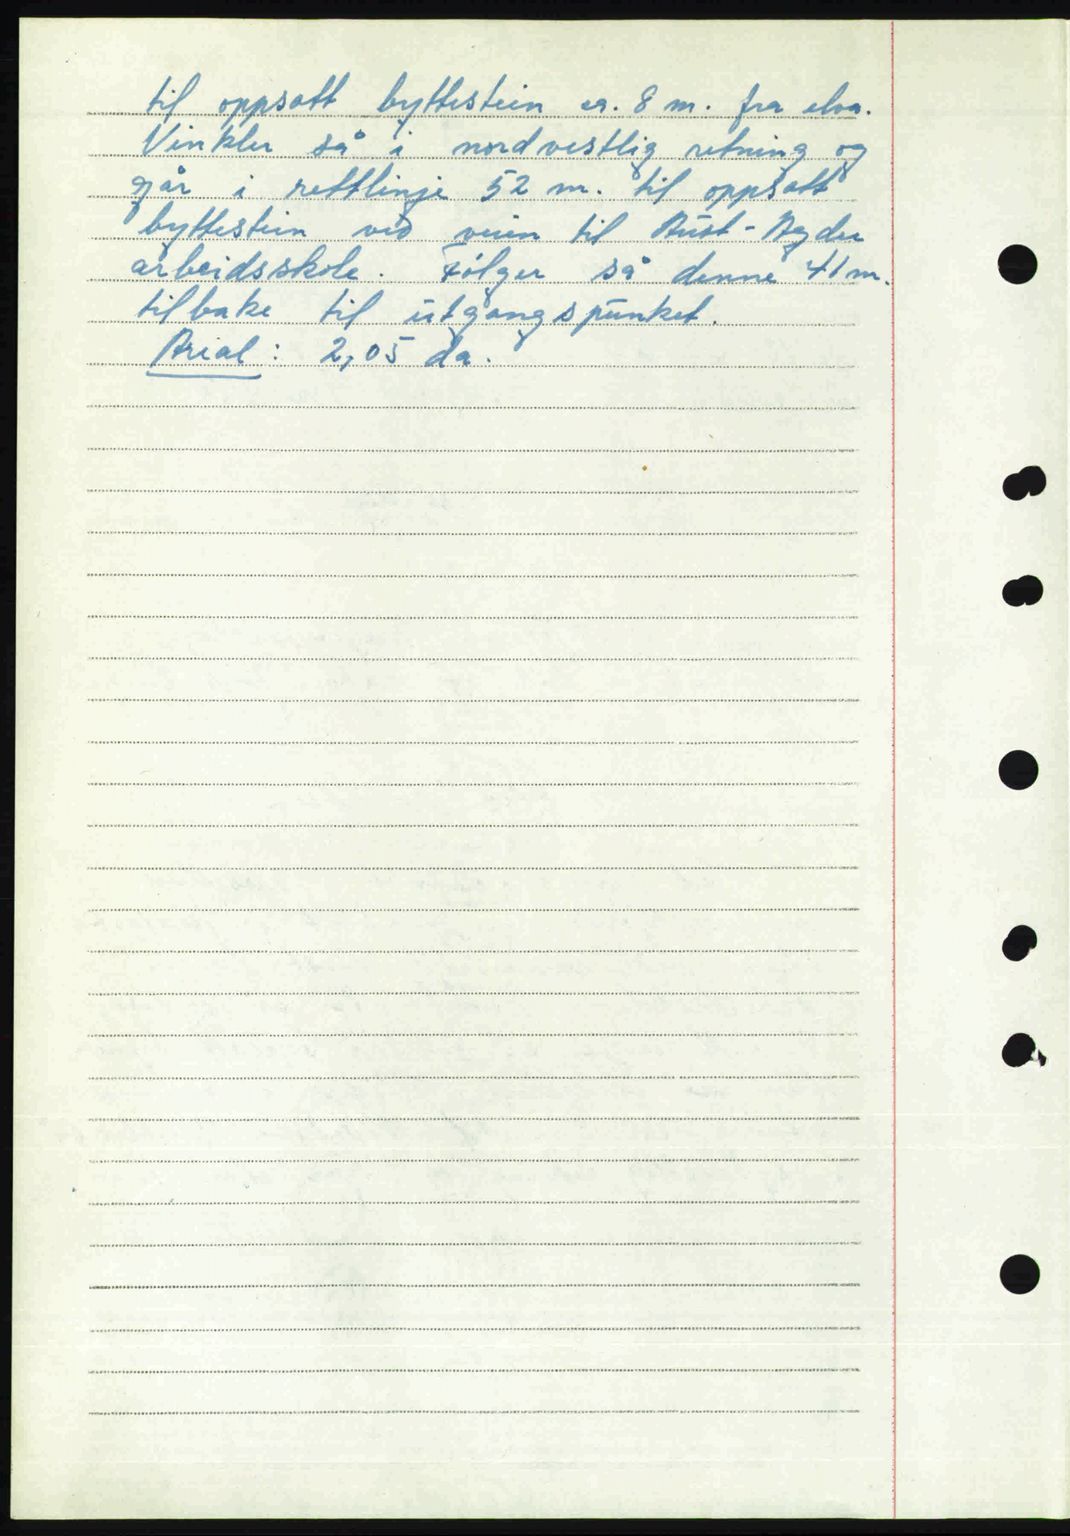 til oppsatt byttestein ca. 8 m. fra elva.
Vinkler så i nordvestlig retning og
går i rettlinje 52 m. til oppsatt
byttestein ved veien til Aust-Agder
arbeidsskole. Følger så denne 41 m.
tilbake til utgangspunket.
Arial: 2,05 da.